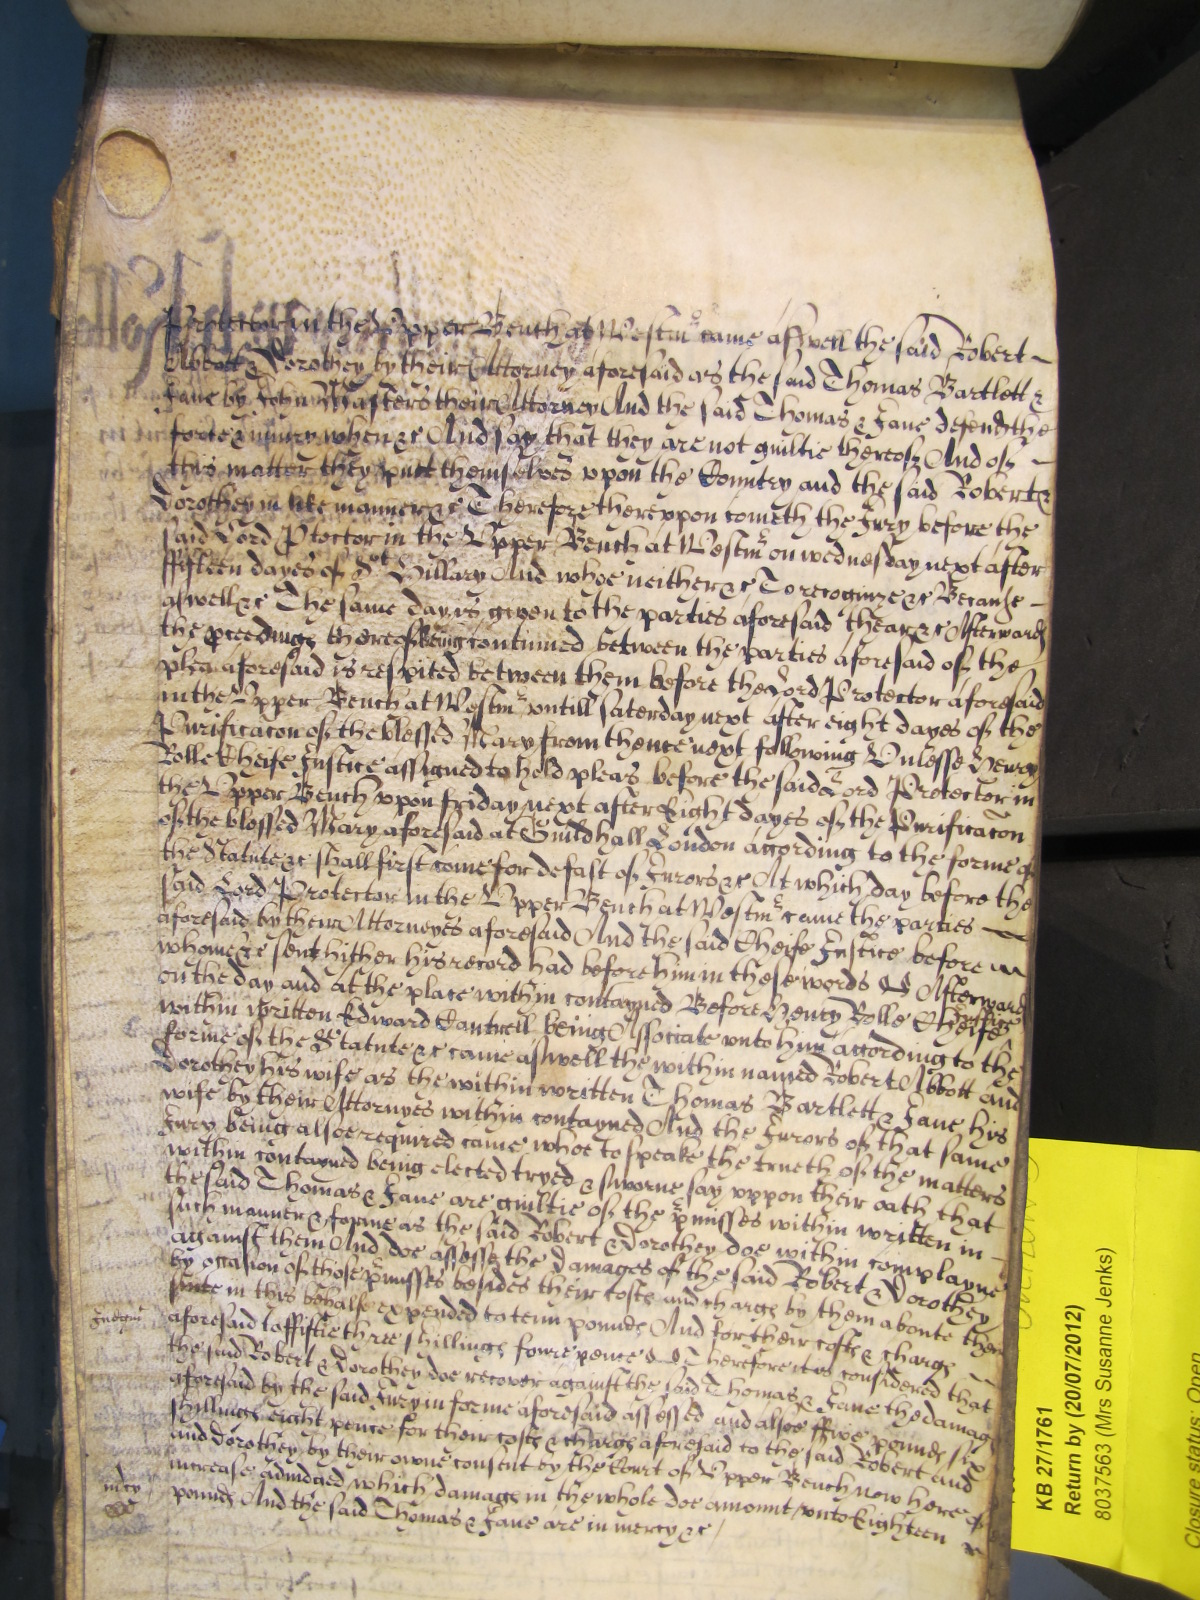 Protector in the Upper Bench at Westmr came aswell the said Robert
Abbott & Dorothey by their Attorney aforesaid as the said Thomas Bartlett &
Jane by John Masters their Attorney And the said Thomas & Jane defend the
force & iniury when &c And say that they are not guiltie thereof And of
this matter they putt themselves vpon the Country and the said Robert &
Dorothey in like manner &c Therefore therevpon cometh the Jury before the
said Lord Ptector in the Upper Bench at Westmr on wednesday next after
fifteen dayes of St Hillary And whoe neither &c To recognize &c Because
aswell &c The same day is given to the parties aforesaid thear &c Afterwards
the pceedings thereof being continued between the parties aforesaid of the
plea aforesaid is respited between them before the Lord Protector aforesaid
in the Upper Bench at Westmr vntill saterday next after eight dayes of the
Purificacon of the blessed Mary from thence next following Unlesse Henry
Rolle Cheife Justice assigned to hold pleas before the said Lord Protector in
the Upper Bench vpon friday next after Eight dayes of the Purificacon
of the blessed Mary aforesaid at Guildhall London according to the forme of
the Statute &c shall first come for defalt of Jurors &c At which day before the
said Lord Protector in the Upper Bench at Westmr came the parties
aforesaid by their Attorneyes aforesaid And the said Cheife Justice before
whome &c sent hither his record had before him in these words Afterwards
on the day and at the place within contayned Before Henry Rolle Cheife Justice
within written Edward Cantrell being Associate vnto him according to the
forme of the Statute &c came aswell the within named Robert Abbott and
Dorothey his wife as the within written Thomas Bartlett & Jane his
wife by their Attornyes within contayned And the Jurors of that same
Jury being alsoe required came whoe to speake the trueth of the matters
within contayned being elected tryed & sworne say vppon their oath that
the said Thomas & Jane are guiltie of the pmisses within written in
such manner & forme as the said Robert & Dorothey doe within complayne
against them And doe assesse the damages of the said Robert & Dorothey
by occasion of those pmisses besides their costs and charges by them aboute their
suite in this behalfe expended to tenn pounds And for their costs & charges
aforesaid to fiftie three shillings fowre pence Therefore it is considered that
Judgmt
the said Robert & Dorothey doe recover against the said Thomas & Jane the damages
aforesaid by the said Jury in forme aforesaid assessed and alsoe ffive pounds six
shillings eight pence for their costs & charges aforesaid to the said Robert and
and Dorothey by their owne consent by the Court of Upper Bench now here of
increase adiudged which damages in the whole doe amount vnto Eighteen
mcy
pounds And the said Thomas & Jane are in mercy &c
KB 27/1761
Return by (20/07/2012)
8037563 (Mrs Susanne Jenks)
Closure status: Open